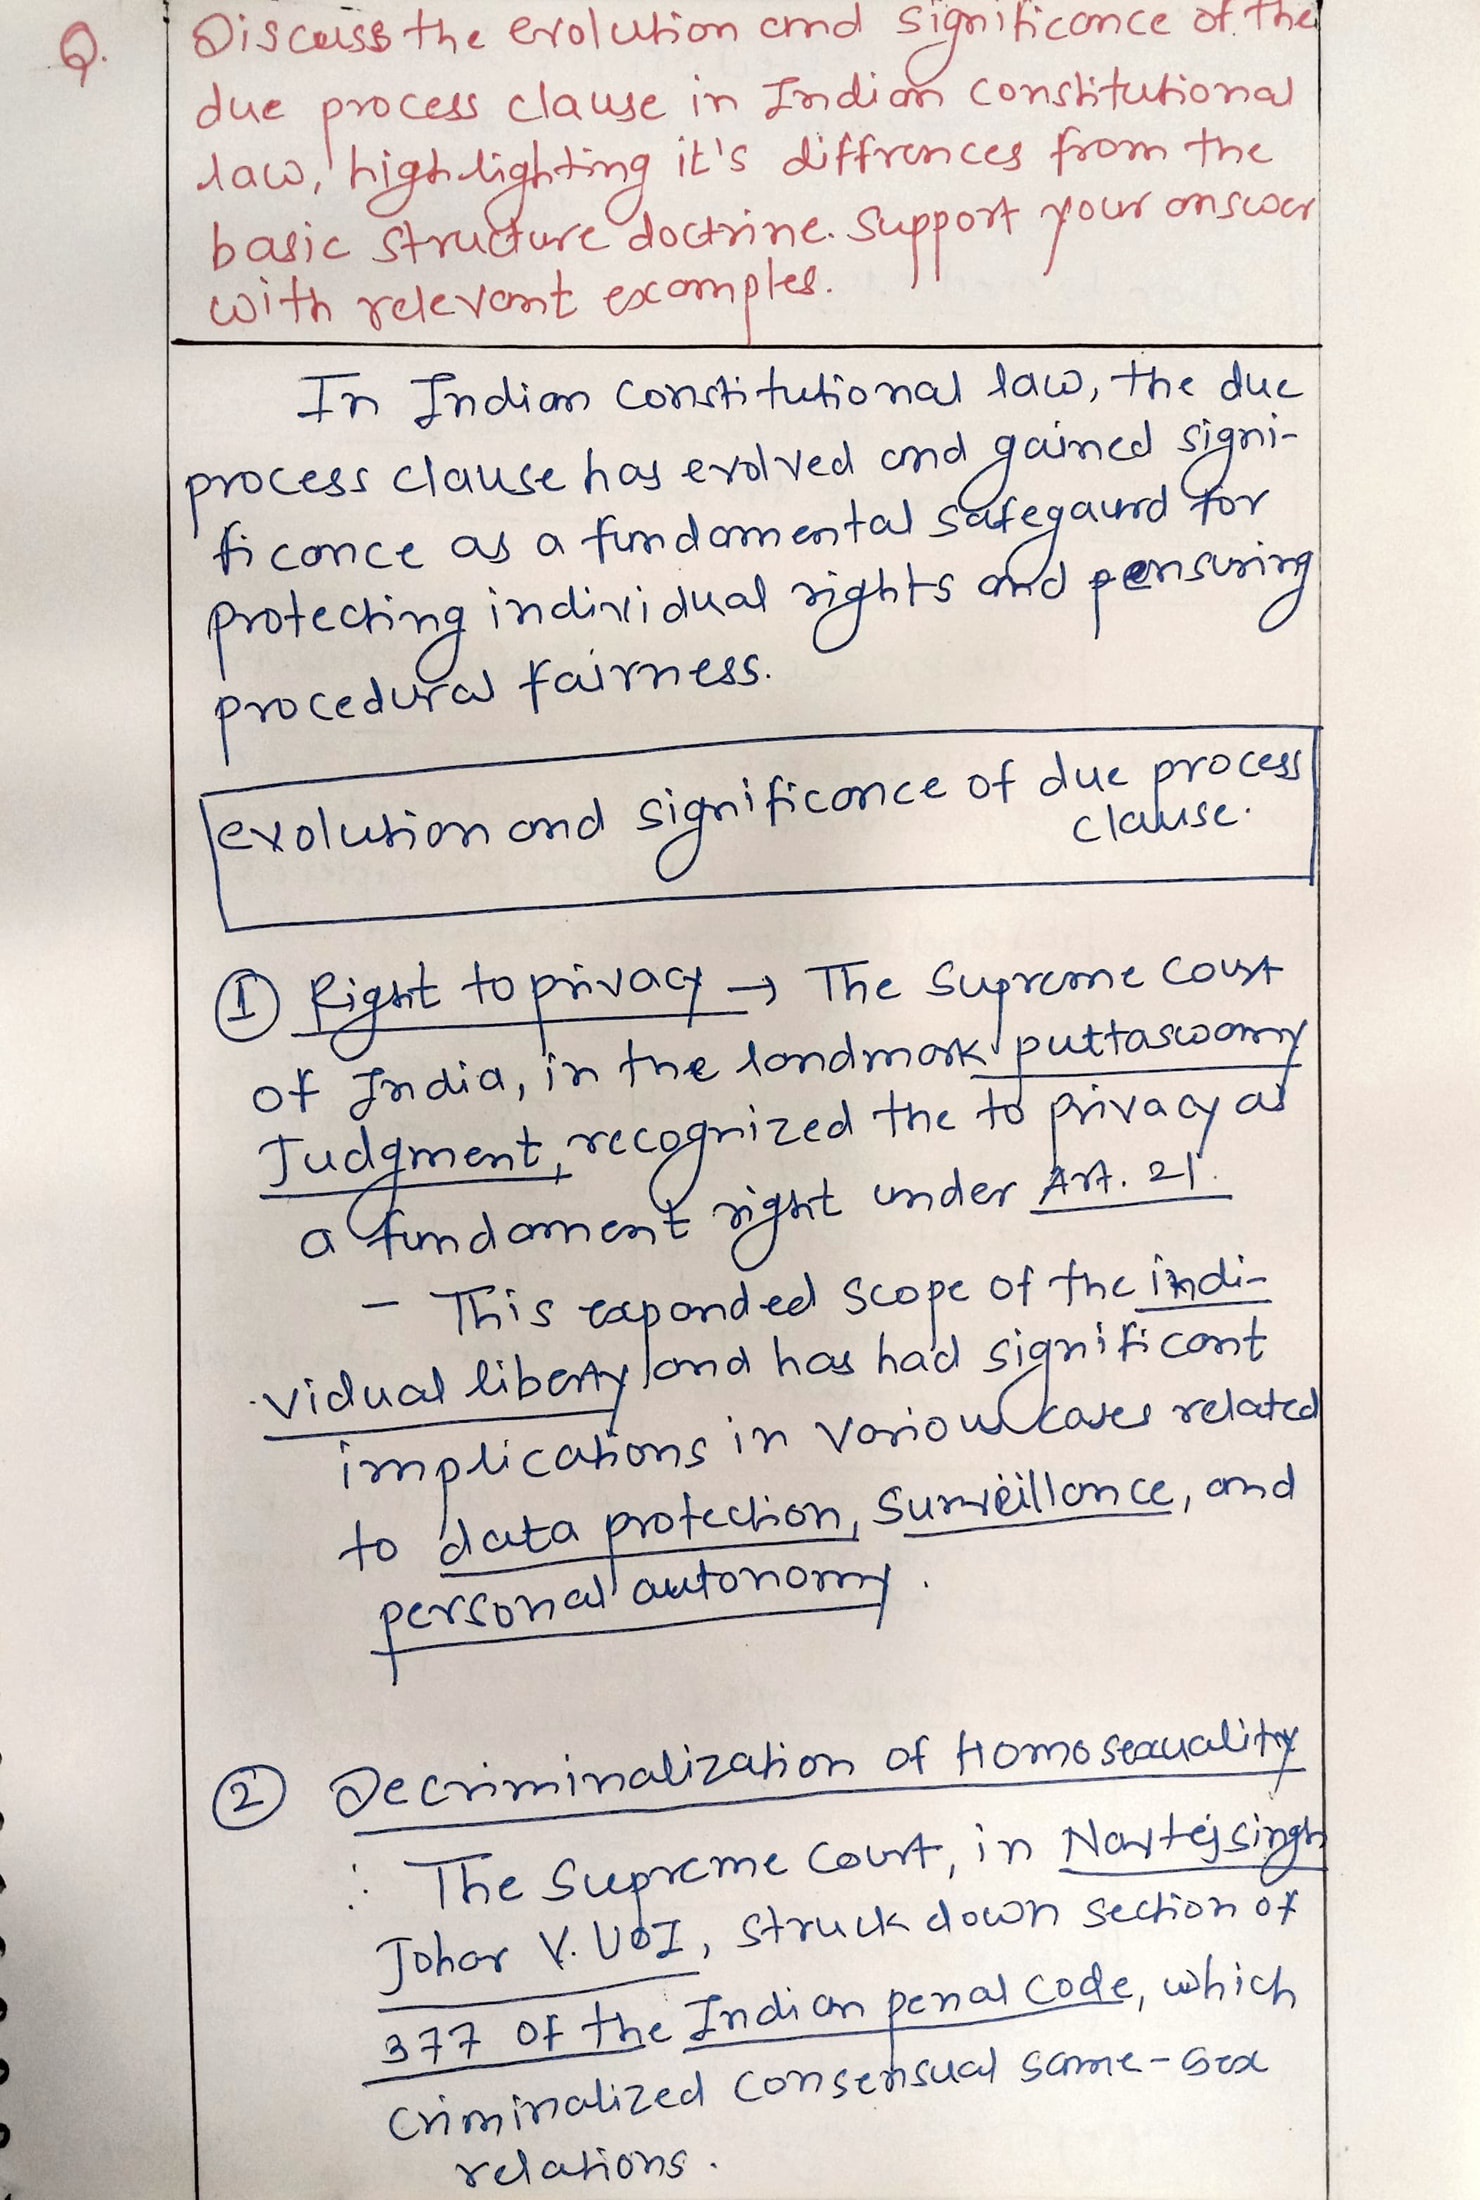 Q. Discuss the evolution and significance of the
due process clause in Indian constitutional
law, highlighting it's diffrences from the
basic structure doctrine. Support your answer
with relevant examples.
In Indian constitutional law, the due
process clause has evolved and gained signi-
ficance as a fundamental safegaurd for
protecting individual rights and ensuring
procedural fairness.
evolution and significance of due process
clause.
① Right to privacy → The Supreme Court
of India, in the landmark puttaswamy
Judgment, recognized the to privacy as
a fundament right under Art. 21.
- This expanded scope of the indi-
vidual liberty and has had significant
implications in various cases related
to data protection, Surveillance, and
personal autonomy.
② Decriminalization of Homosexuality
: The Supreme Court, in Navtej singh
Johar V. UOI, struck down section of
377 of the Indian penal code, which
criminalized consensual same-sex
relations.